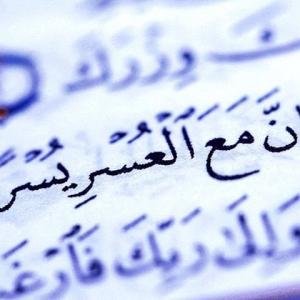 وِزْرَكَ
إنَّ مَعَ ٱلْعُسْرِ يُسْرً
وَإِلَىٰ رَبِّكَ فَٱرْغَ